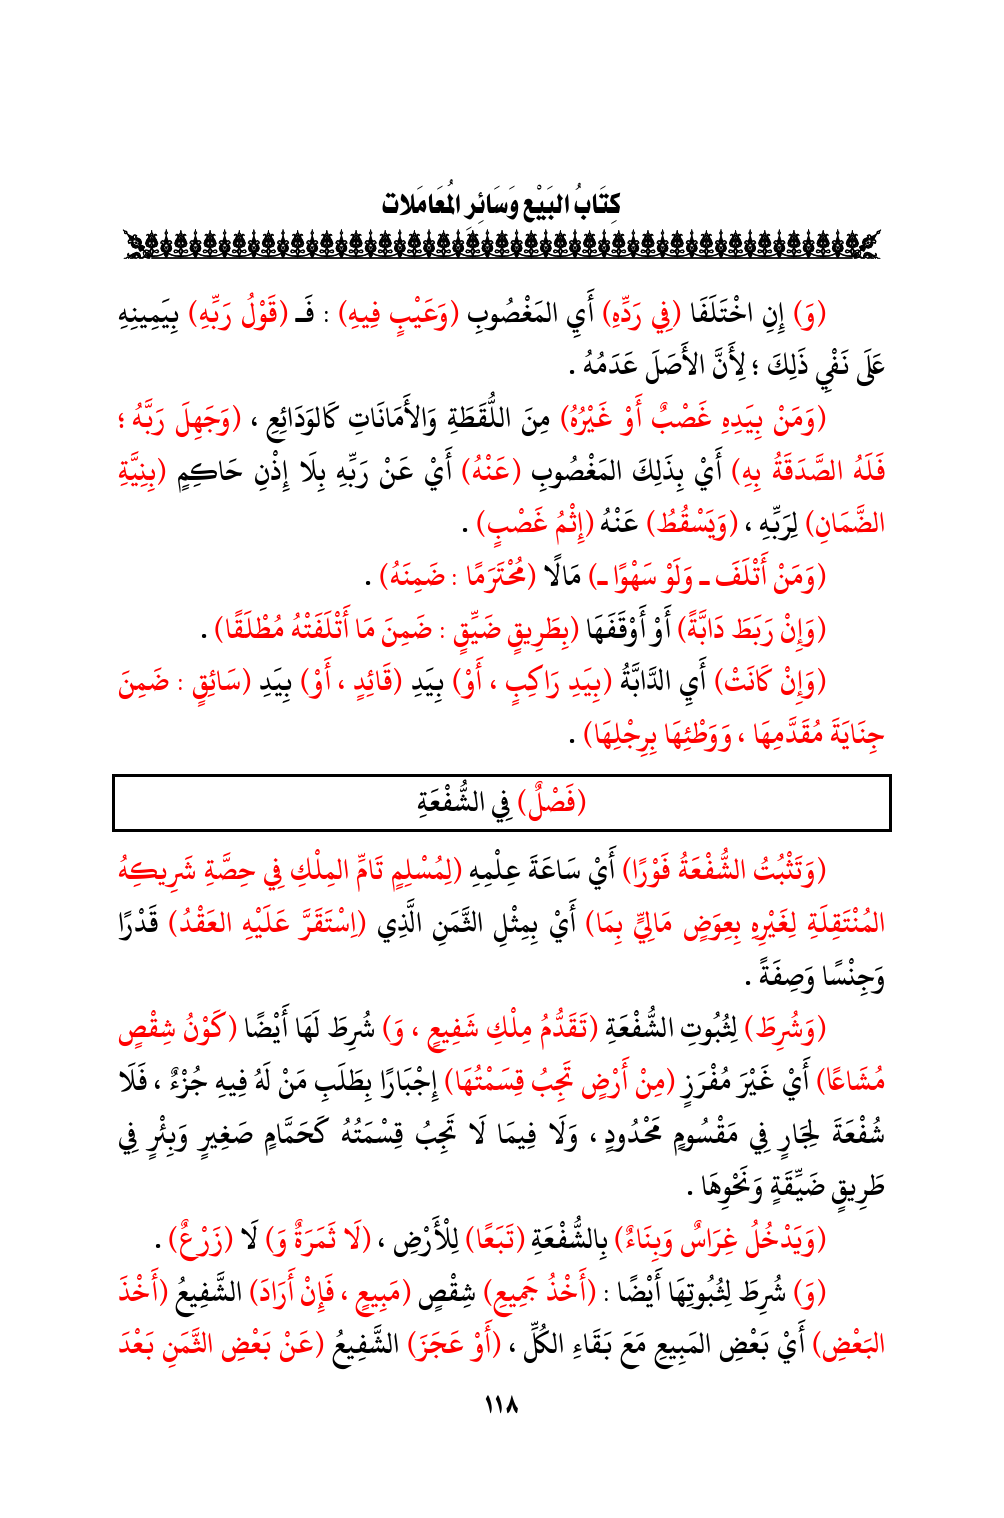 كِتَابُ البَيْعِ وَسَائِرِ المُعَامَلات
(وَ) إِنِ اخْتَلَفَا (فِي رَدِّهِ) أَيِ المَغْصُوبِ (وَعَيْبٍ فِيهِ) : فَـ (قَوْلُ رَبِّهِ) بِيَمِينِهِ
عَلَى نَفْيِ ذَلِكَ ؛ لِأَنَّ الأَصَلَ عَدَمُهُ .
(وَمَنْ بِيَدِهِ غَصْبٌ أَوْ غَيْرُهُ) مِنَ اللُّقَطَةِ وَالأَمَانَاتِ كَالوَدَائِعِ ، (وَجَهِلَ رَبَّهُ ؛
فَلَهُ الصَّدَقَةُ بِهِ) أَيْ بِذَلِكَ المَغْصُوبِ (عَنْهُ) أَيْ عَنْ رَبِّهِ بِلَا إِذْنِ حَاكِمٍ (بِنِيَّةِ
الضَّمَانِ) لِرَبِّهِ ، (وَيَسْقُطُ) عَنْهُ (إِثْمُ غَصْبٍ) .
(وَمَنْ أَتْلَفَ ـ وَلَوْ سَهْوًا ـ) مَالًا (مُحْتَرَمًا : ضَمِنَهُ) .
(وَإِنْ رَبَطَ دَابَّةً) أَوْ أَوْقَفَهَا (بِطَرِيقٍ ضَيِّقٍ : ضَمِنَ مَا أَتْلَفَتْهُ مُطْلَقًا) .
(وَإِنْ كَانَتْ) أَيِ الدَّابَّةُ (بِيَدِ رَاكِبٍ ، أَوْ) بِيَدِ (قَائِدٍ ، أَوْ) بِيَدِ (سَائِقٍ : ضَمِنَ
جِنَايَةَ مُقَدَّمِهَا ، وَوَطْئِهَا بِرِجْلِهَا) .
(فَصْلٌ) فِي الشُّفْعَةِ
(وَتَثْبُتُ الشُّفْعَةُ فَوْرًا) أَيْ سَاعَةَ عِلْمِهِ (لِمُسْلِمٍ تَامِّ المِلْكِ فِي حِصَّةِ شَرِيكِهُ
المُنْتَقِلَةِ لِغَيْرِهِ بِعِوَضٍ مَالِيٍّ بِمَا) أَيْ بِمِثْلِ الثَّمَنِ الَّذِي (اِسْتَقَرَّ عَلَيْهِ العَقْدُ) قَدْرًا
وَجِنْسًا وَصِفَةً .
(وَشُرِطَ) لِثُبُوتِ الشُّفْعَةِ (تَقَدُّمُ مِلْكِ شَفِيعٍ ، وَ) شُرِطَ لَهَا أَيْضًا (كَوْنُ شِقْصٍ
مُشَاعًا) أَيْ غَيْرَ مُفْرَزٍ (مِنْ أَرْضٍ تَجِبُ قِسَمْتُهَا) إِجْبَارًا بِطَلَبِ مَنْ لَهُ فِيهِ جُزْءٌ ، فَلَا
شُفْعَةَ لِجَارٍ فِي مَقْسُومٍ مَحْدُودٍ ، وَلَا فِيمَا لَا تَجِبُ قِسْمَتُهُ كَحَمَّامٍ صَغِيرٍ وَبِئْرٍ فِي
طَرِيقٍ ضَيِّقَةٍ وَنَحْوِهَا .
(وَيَدْخُلُ غِرَاسٌ وَبِنَاءٌ) بِالشُّفْعَةِ (تَبَعًا) لِلْأَرْضِ ، (لَا ثَمَرَةٌ وَ) لَا (زَرْعٌ) .
(وَ) شُرِطَ لِثُبُوتِهَا أَيْضًا : (أَخْذُ جَمِيعِ) شِقْصٍ (مَبِيعٍ ، فَإِنْ أَرَادَ) الشَّفِيعُ (أَخْذَ
البَعْضِ) أَيْ بَعْضِ المَبِيعِ مَعَ بَقَاءِ الكُلِّ ، (أَوْ عَجَزَ) الشَّفِيعُ (عَنْ بَعْضِ الثَّمَنِ بَعْدَ
١١٨